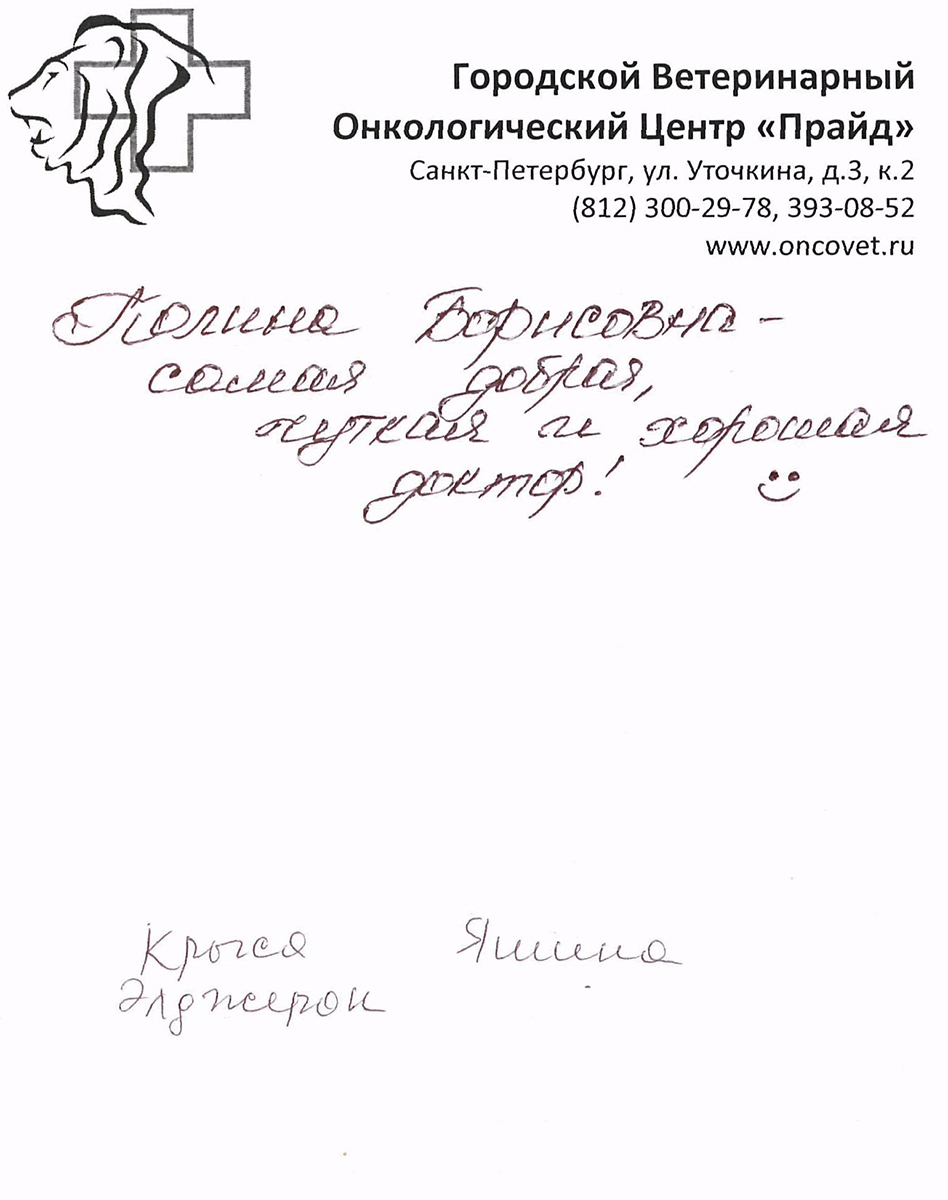 Городской Ветеринарный
Онкологический Центр «Прайд»
Санкт-Петербург, ул. Уточкина, д.3, к.2
(812) 300-29-78, 393-08-52
www.oncovet.ru
Полина Борисовна –
самая добрая,
чуткая и хорошая
доктор!
Крыса Яшина
Элджерон